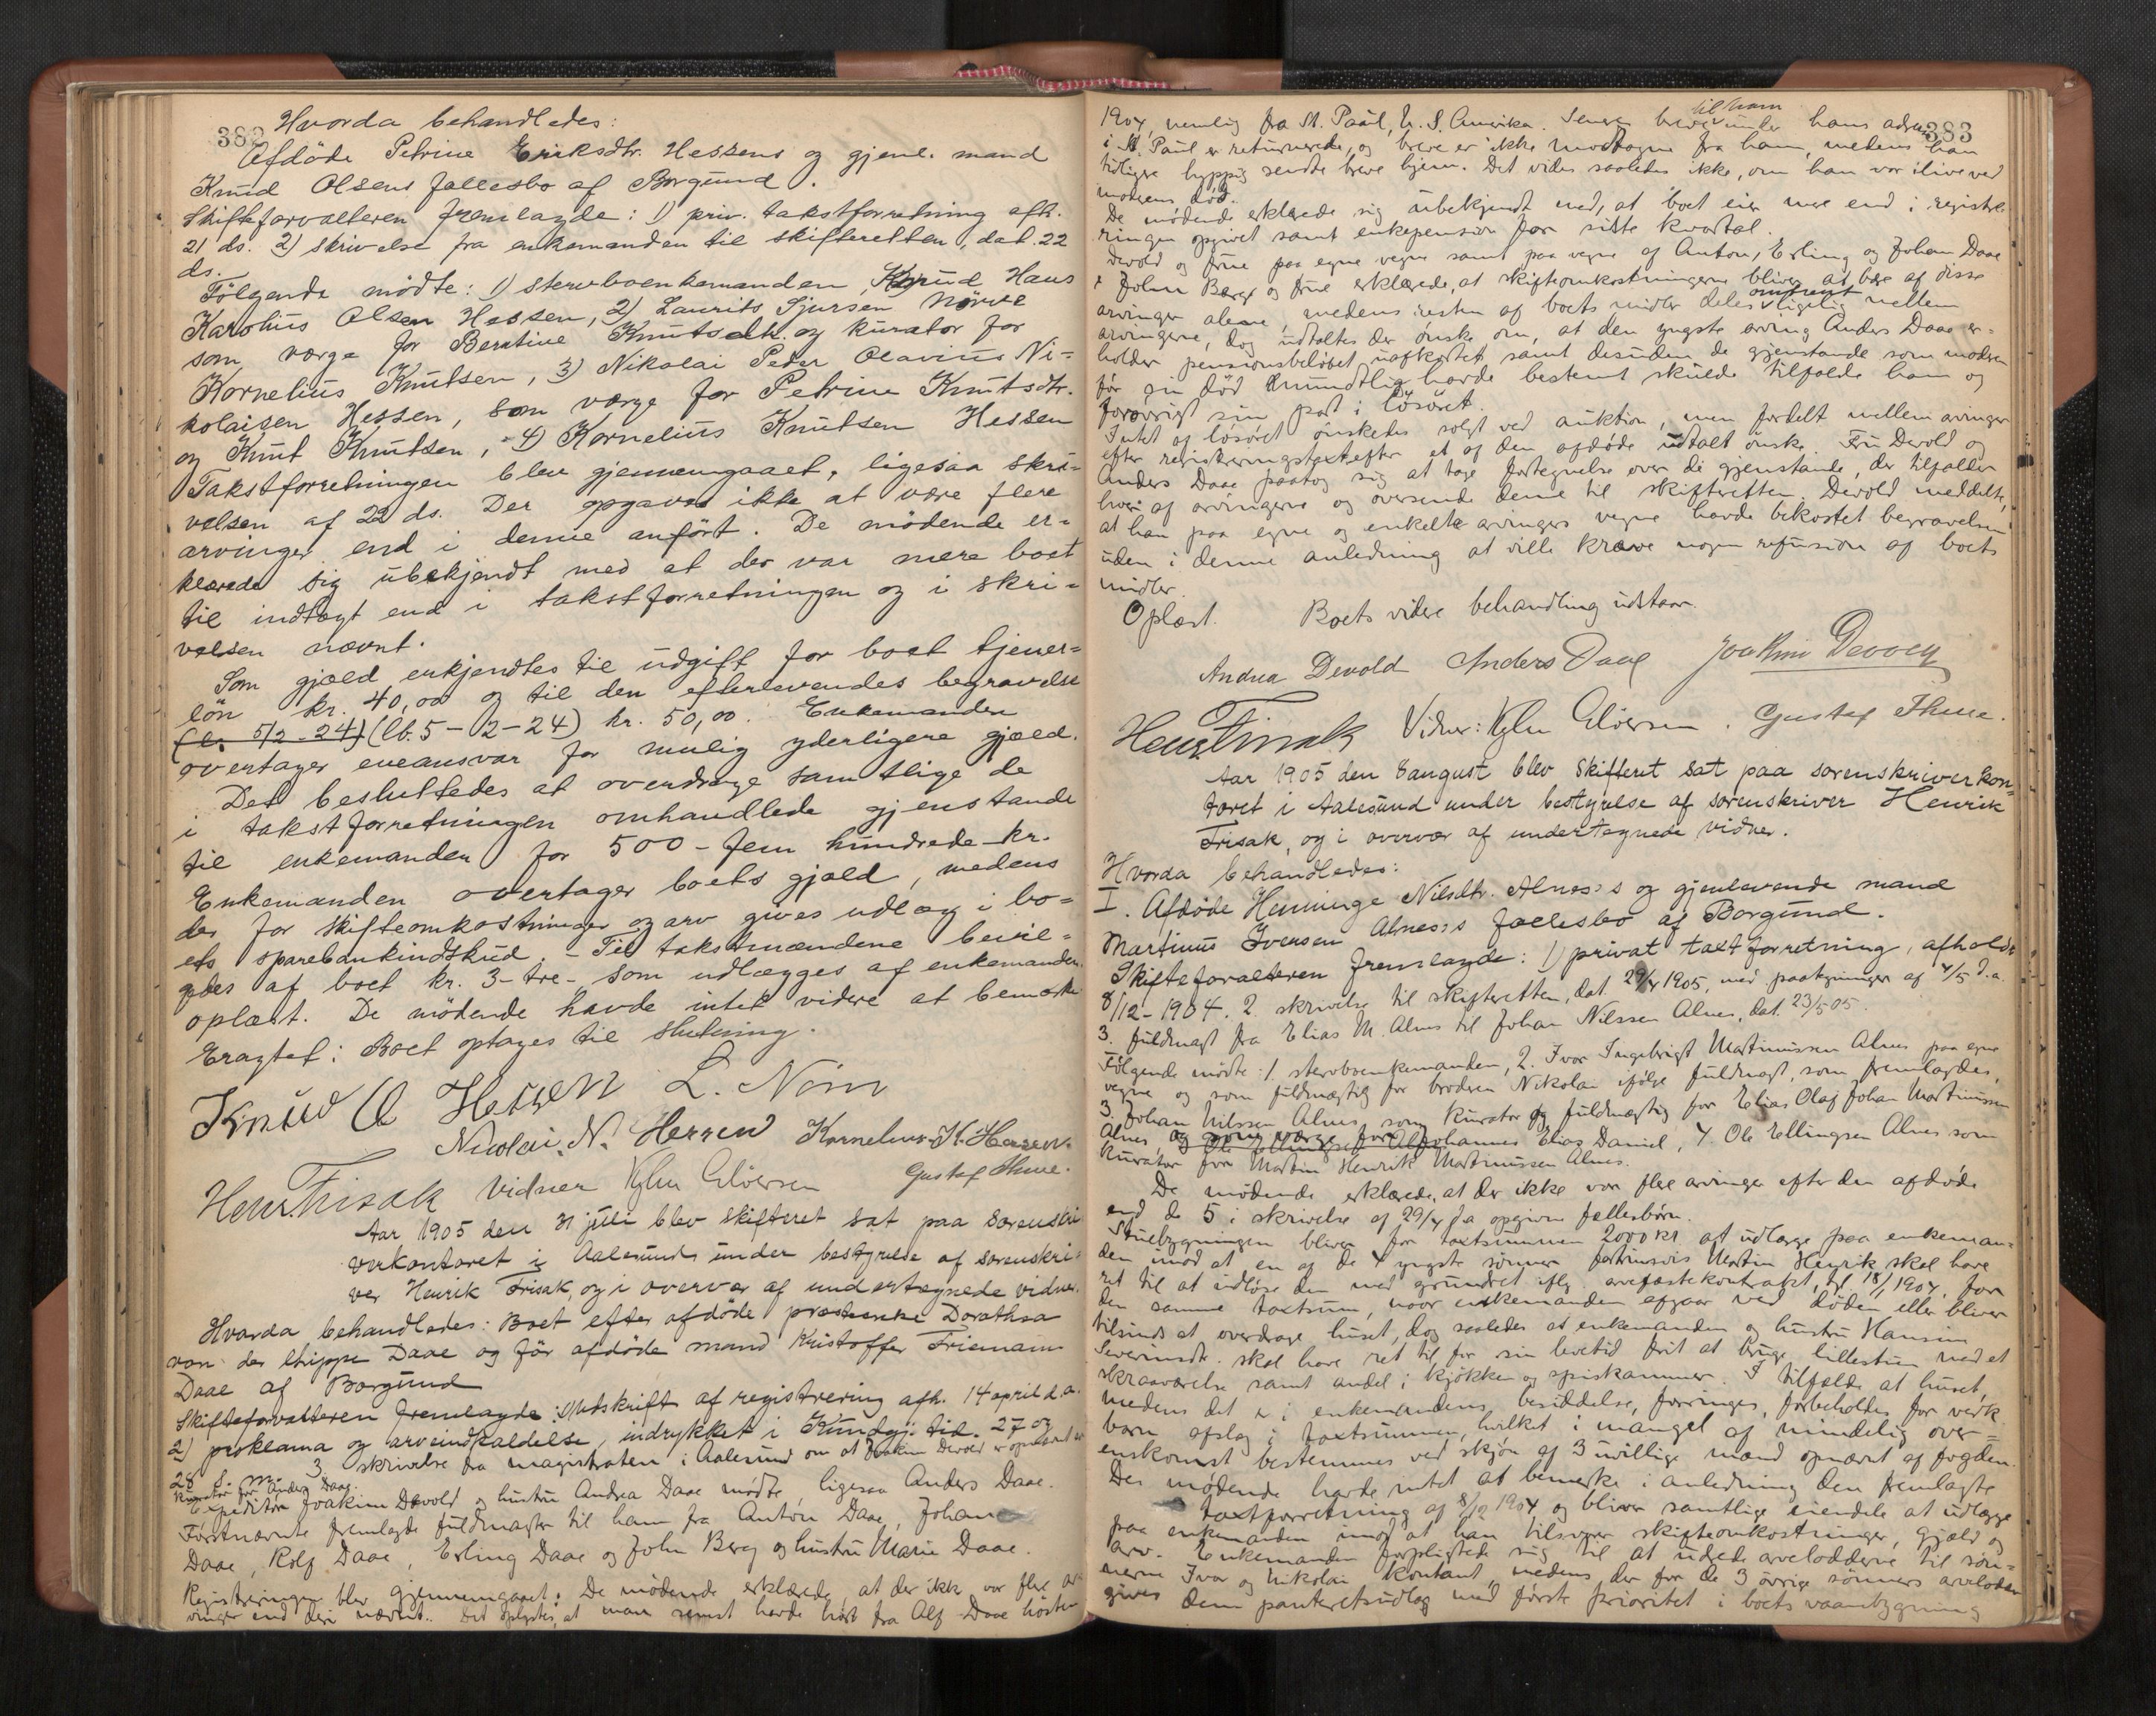 382
Hvorda behandledes:
Afdöde Petrine Eriksdtr. Hessens og gjenl. mand
Knud Olsens fællesbo af Borgund.
Skifteforvalteren fremlagde: 1) priv. takstforretning afh.
21 ds. 2) skrivelse fra enkemanden til skifteretten, dat. 22
ds.
Følgende mödte: 1) stervboenkemanden, Knud Hans
Karolius Olsen Hessen, 2) Laurits Sjursen Nörve
som værge for Berntine Knutsdtr. og kurator for
Kornelius Knutsen, 3) Nikolai Peder Olavius Ni-
kolaisen Hessen, som værge for Petrine Knutsdtr.
og Knut Knutsen, 4) Kornelius Knutsen Hessen
Takstforretningen blev gjennemgaaet, ligesaa skri-
velsen af 22 ds. Der opgaves ikke at være flere
arvinger end i denne anført. De mödende er-
klærede sig ubekjendt med at der var mere boet
til indtægt end i takstforretningen og i skri-
velsen nævnt.
Som gjæld erkjendtes til udgift for boet tjener-
lön kr. 40,00 og til den efterlevendes begravelse
(lb. 5/2-24) (lb. 5-2-24) kr. 50,00. Enkemanden
overtager eneansvar for mulig yderligere gjæld.
Det besluttedes at overdrage samtlige de
i takstforretningen omhandlede gjenstande
til enkemanden for 500 - fem hundrede - kr.
Enkemanden overtager boets gjæld, medens
der for skifteomkostninger og arv gives udlæg i bo-
ets sparebankindskud. - Til takstmændene bevil-
gdes af boet kr. 3 - tre - som udlægges af enkemanden.
oplæst. De mödende havde intet videre at bemærke
Eragtet: Boet optages til slutning.
Knud O Hessen L. Nörv
Nicolai. N. Hessen Kornelius K. Hessen
Henr. Frisak Vidner Kyln Eløersen Gustaf Thue.
Aar 1905 den 31 juli blev skifteret sat paa sorenskri
verkontoret i Aalesund under bestyrelse af sorenskri-
ver Henrik Frisak, og i overvær af undertegnede vidner.
Hvorda behandledes: Boet efter afdöde præsteenke Dorothea
von der Lhippe Daae og för afdöde mand Kristoffer Friemann
Daae af Borgund
Skifteforvalteren fremlagde: 1) Udskrift af registrering afh. 14 april d.a.
2) proklama og arveindkaldelse, indrykket i Kundgj. tid. 27 og
28 s. m. 3. skrivelse fra magistraten i Aalesund om at Joakim Devold er opnævnt
kurator for Anders Daae.
Expeditör Joakim Devold og hustru Andrea Daae mødte, ligesaa Anders Daae.
Førstnævnte fremlagde fuldmagter til ham fra Anton Daae, Johan
Daae, Rolf Daae, Erling Daae og John Berg og hustru Marie Daae.
Registreringen blev gjennemgaaet. De mödende erklærede, at der ikke var flere ar-
vinger end deri nævnt. Det oplystes, at man senest havde hørt fra Alf Daae hösten
383
1904, nemlig fra St. Paul, U. S. Amerika. Senere breve til ham under hans adresse
i St. Paul er returnerede, og breve er ikke modtagne fra ham, medens han
tidligere hyppig sendte breve hjem. Det vides saaledes ikke, om han var ilive ved
moderens död.
De mødende erklærede sig ubekjendt med, at boet eier mere end i registre-
ringen opgivet samt enkepension for sidste kvartal.
Devold og frue paa egne vegne samt paa vegne af Anton, Erling og Johan Daae
& John Berg og frue erklærede, at skifteomkostningerne bliver at bære af disse
arvinger alene, medens resten af boets midler deles omtrent ligelig mellem
arvingerne, dog udtaltes der önske om, at den yngste arving Anders Daae er-
holder pensionsbeløbet uafkortet samt desuden de gjenstande som moderen
før sin död mundtlig havde bestemt skulde tilfalde ham og
forövrigt sin part i lösöret.
Intet af lösöret önskedes solgt ved auktion, men fordelt mellem arvinger
efter registreringstaxt efter et af den afdøde udtalt önske. Fru Devold og
Anders Daae paatog sig at tage fortegnelse over de gjenstande, der tilfaller
hver af arvingerne og oversende denne til skifteretten. Devold meddelte,
at han paa egne og enkelte arvingers vegne havde bekostet begravelsen
uden i denne anledning at ville kræve nogen refusion af boets
midler.
Oplæst. Boets videre behandling udstaar.
Andrea Devold Anders Daae Joakim Devold
Henr. Frisak Vidner: Kyln Eløersen. Gustaf Thue.
Aar 1905 den 8 august blev skifteret sat paa sorenskriverkon-
toret i Aalesund under bestyrelse af sorenskriver Henrik
Frisak, og i overvær af undertegnede vidner.
Hvorda behandledes:
I. Afdøde Henninge Nilsdtr. Alnes's og gjenlevende mand
Martinus Iversen Alnes's fællesbo af Borgund.
Skifteforvalteren fremlagde: 1) privat taxtforretning, afholdt
8/12-1904. 2. skrivelse til skifteretten, dat 29/4 1905, med paategninger af 4/5 d.a.
3. fuldmagt fra Elias M. Alnes til Johan Nilssen Alnes, dat. 23/5 05.
Følgende mødte: 1. stervboenkemanden, 2. Ivar Ingebrigt Martinussen Alnes paa egne
vegne og som fuldmægtig for broderen Nikolai ifølge fuldmagt, som fremlagdes,
3. Johan Nilssen Alnes, som kurator og fuldmægtig for Elias Olaf Johan Martinussen
Alnes, og som værge for Johannes Elias Daniel, 4. Ole Ellingsen Alnes som
kurator for Martin Henrik Martinussen Alnes.
De mødende erklærede, at der ikke var flere arvinger efter den afdøde
end de 5 i skrivelse af 29/4 d.a opgivne fællesbørn.
Stuebygningen bliver for taxtsummen 2000 kr. at udlægge paa enkeman-
den imod at en af de 4 yngste sønner fortrinsvis Martin Henrik skal have
ret til at indløse den med grundret iflg. arvefæstekontrakt, tgl. 18/1 1904, for
den samme taxtsum, naar enkemanden afgaar ved døden eller bliver
tilsinds at overdrage huset, dog saaledes at enkemanden og hustru Hansine
Severinsdtr. skal have ret til for sin levetid frit at bruge lillestuen med et
skraaværelse samt andel i kjøkken og spiskammer. I tilfælde at huset,
medens det er i enkemandens besiddelse, forringes, forbeholdes for vedk.
barn afslag i taxtsummen, hvilket i mangel af mindelig over-
enskomst bestemmes ved skjøn af 3 uvillige mænd opnævnt af fogden.
De mødende havde intet at bemerke i anledning den fremlagte
taxtforretning af 8/12 1904 og bliver samtlige eiendele at udlægge
paa enkemanden imod at han tilsvarer skifteomkostninger, gjæld og
arv. Enkemanden forpligtede sig til at udrede arvelodderne til søn-
nerne Ivar og Nikolai kontant, medens der for de 3 övrige sønners arvelodder
gives dem panteretsudlæg med første prioritet i boets vaanbygning